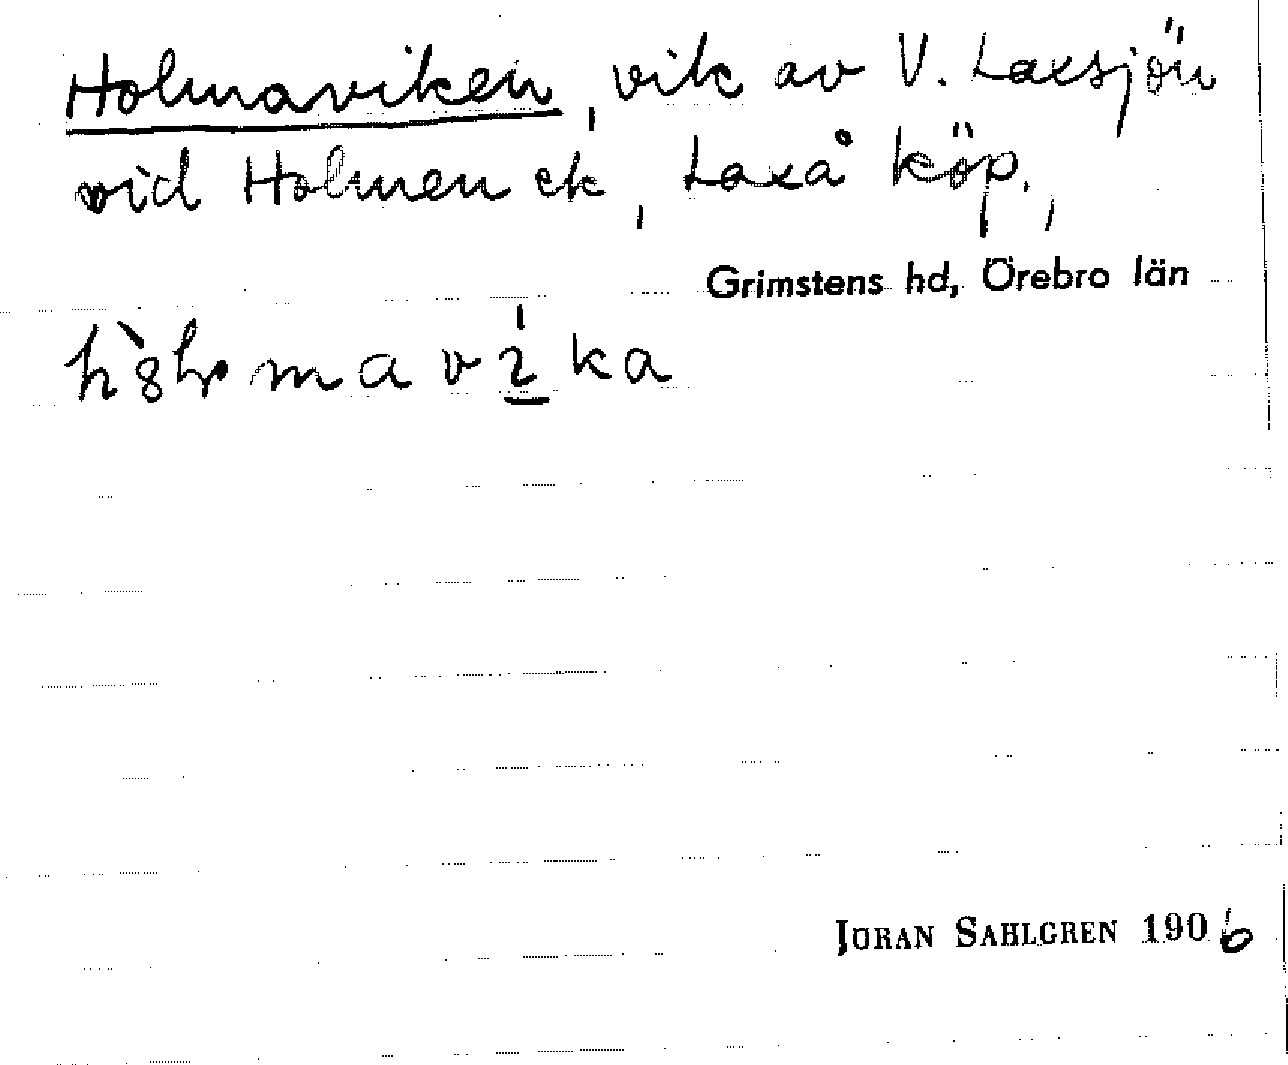 Holmaviken, vik av V. Laxsjön
vid Holmen ek, Laxå köp.,
Grimstens hd, Örebro län
JÖRAN SAHLGREN 1906